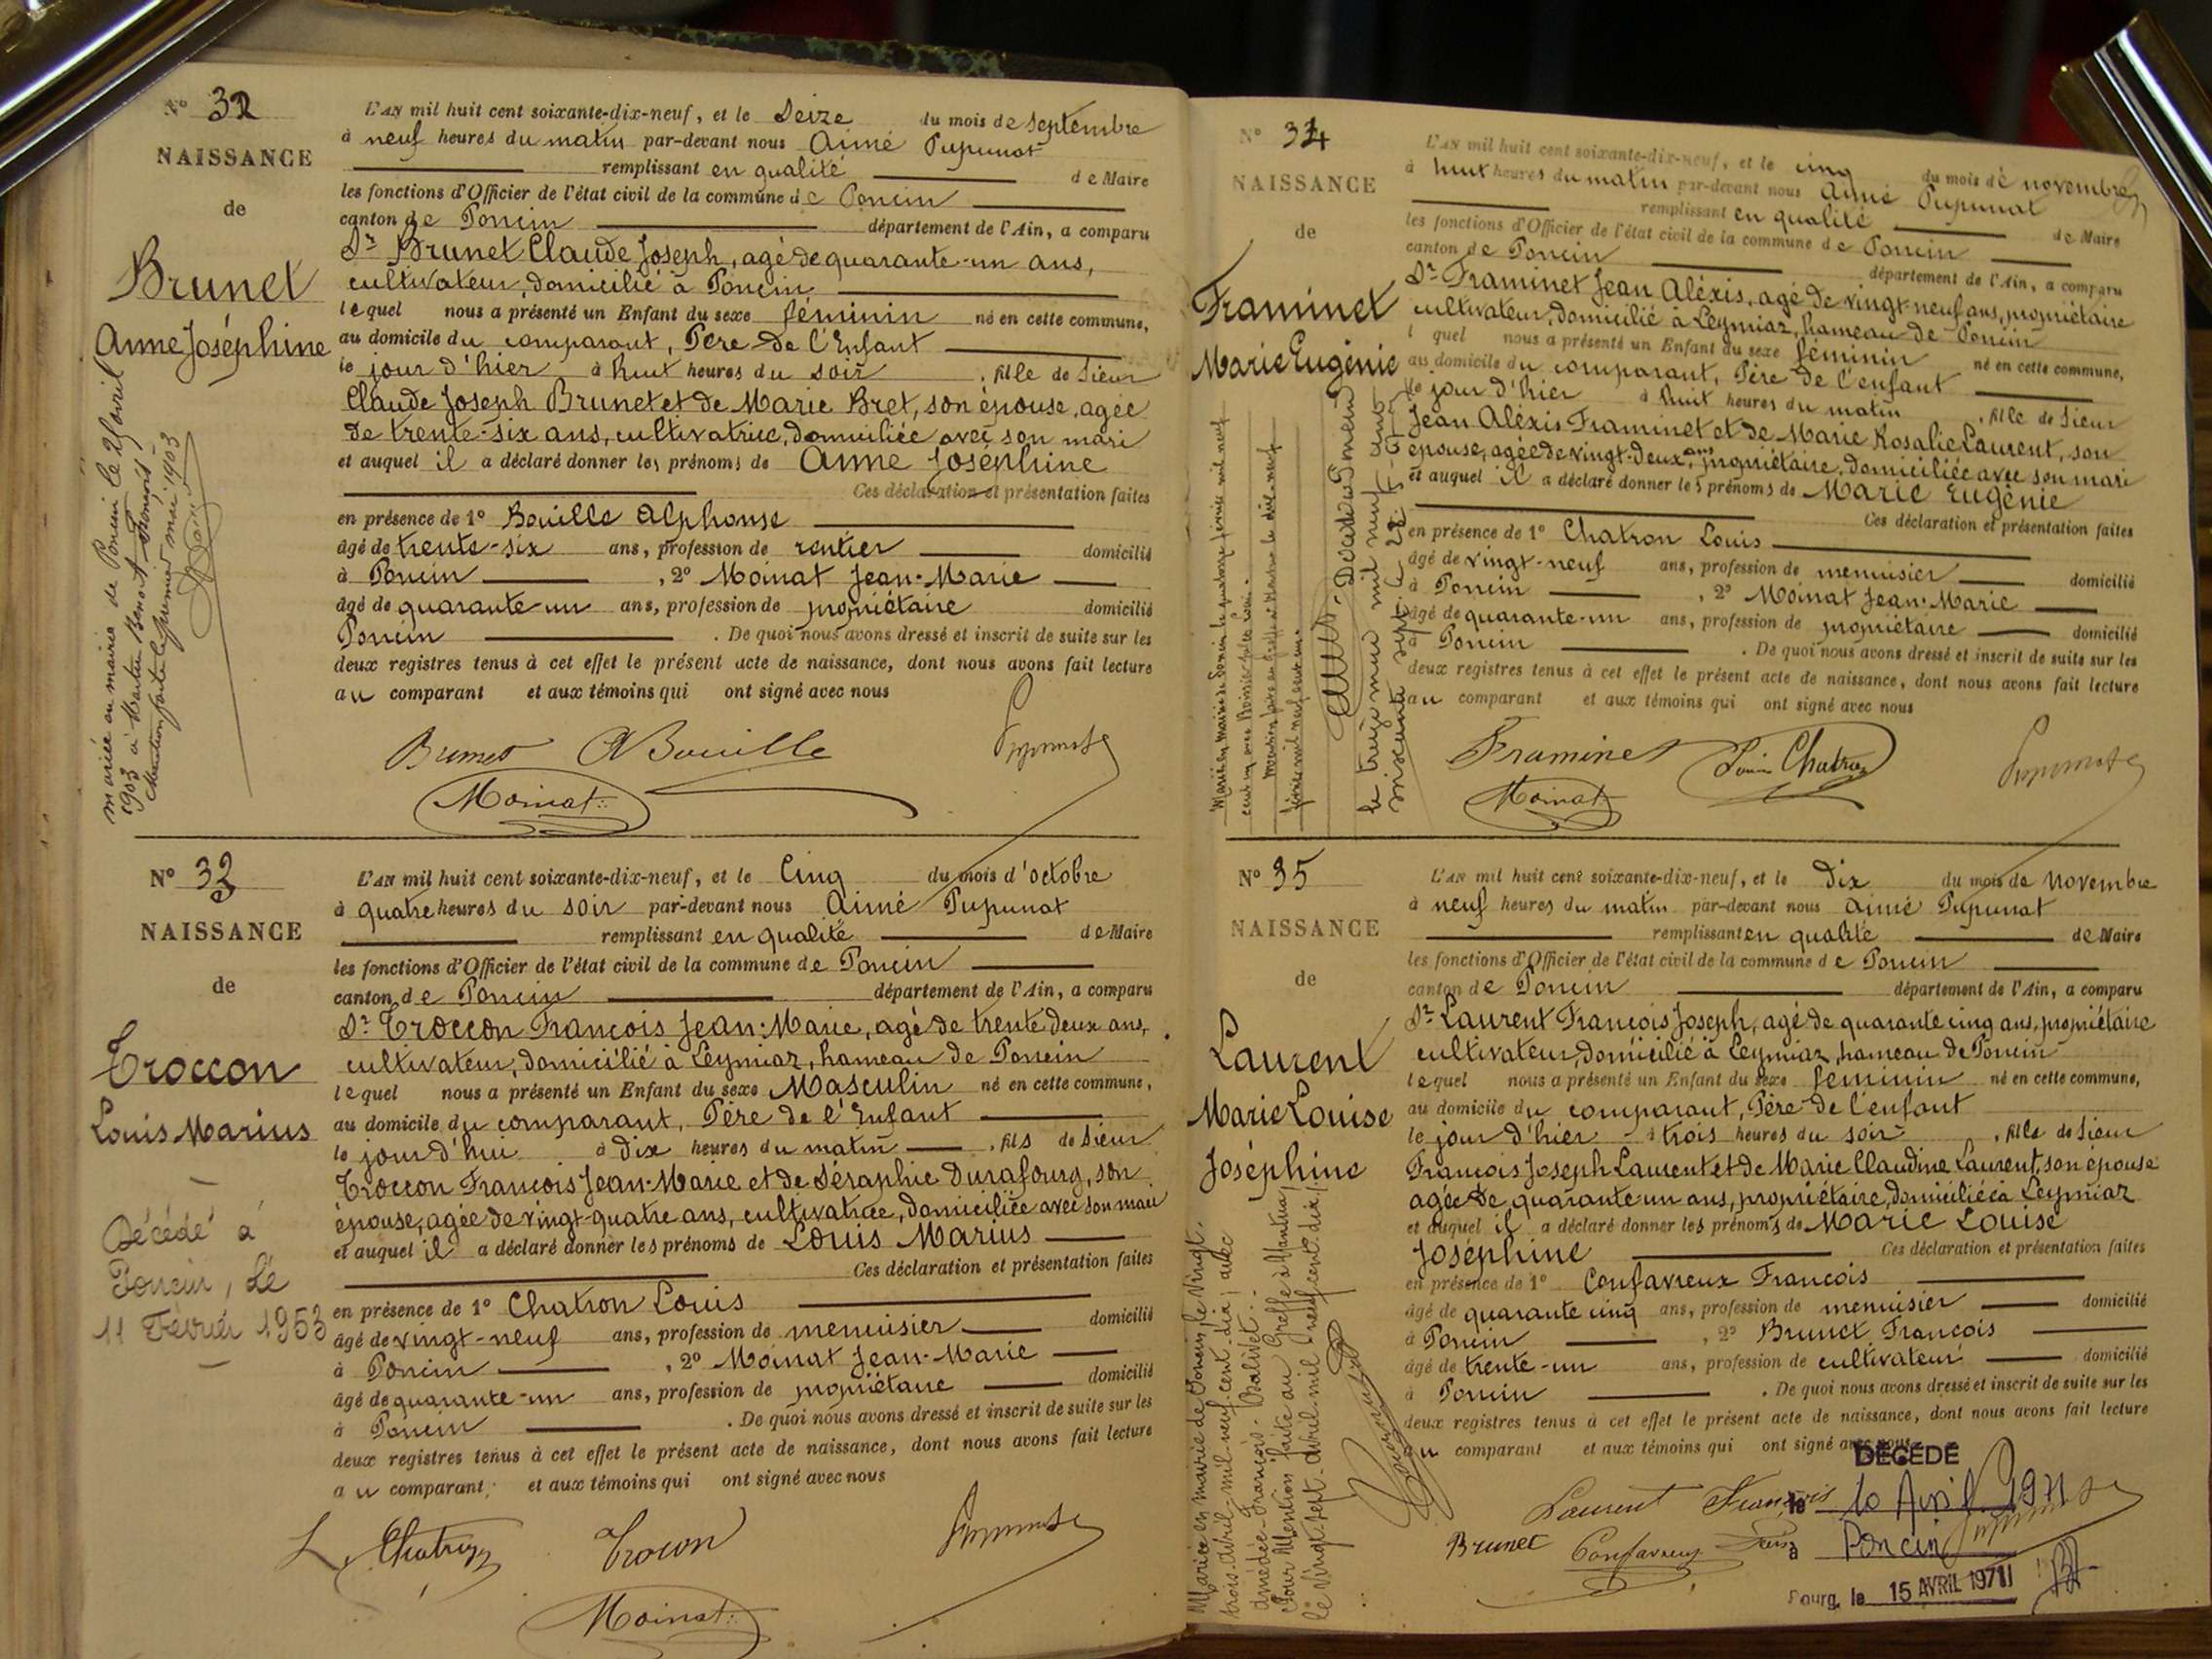 N° 32
NAISSANCE
de
Brunet
Anne Joséphine
mariée en mairie de Poncin le 25 avril
1903 à Martin Benoit François
Mention faite le premier mai 1903
L'AN mil huit cent soixante-dix-neuf, et le Seize du mois de Septembre
à neuf heures du matin par-devant nous Aimé Pupunat
remplissant en qualité de Maire
les fonctions d'Officier de l'état civil de la commune de Poncin
canton de Poncin département de l'Ain, a comparu
Sr Brunet Claude Joseph, agé de quarante-un ans,
cultivateur, domicilié à Poncin
lequel nous a présenté un Enfant du sexe féminin né en cette commune,
au domicile du comparant, Père de l'Enfant
le jour d'hier à huit heures du soir, fille de Sieur
Claude Joseph Brunet et de Marie Bret, son épouse, agée
de trente-six ans, cultivatrice, domiciliée avec son mari
et auquel il a déclaré donner les prénoms de Anne Joséphine
Ces déclaration et présentation faites
en présence de 1° Bouille Alphonse
âgé de trente-six ans, profession de rentier domicilié
à Poncin, 2° Moinat Jean-Marie
âgé de quarante-un ans, profession de propriétaire domicilié
Poncin. De quoi nous avons dressé et inscrit de suite sur les
deux registres tenus à cet effet le présent acte de naissance, dont nous avons fait lecture
au comparant et aux témoins qui ont signé avec nous
Brunet A Bouille Pupunat
Moinat
N° 33
NAISSANCE
de
Troccon
Louis Marius
Décédé à
Poncin, le
11 Février 1953
L'AN mil huit cent soixante-dix-neuf, et le Cinq du mois d'octobre
à quatre heures du soir par-devant nous Aimé Pupunat
remplissant en qualité de Maire
les fonctions d'Officier de l'état civil de la commune de Poncin
canton de Poncin département de l'Ain, a comparu
Sr Troccon François Jean-Marie, agé de trente deux ans,
cultivateur, domicilié à Leymiaz, hameau de Poncin
lequel nous a présenté un Enfant du sexe Masculin né en cette commune,
au domicile du comparant, Père de l'Enfant
le jour d'hui à dix heures du matin, fils de Sieur
Troccon François Jean-Marie et de Séraphie Durafourg, son
épouse, agée de vingt-quatre ans, cultivatrice, domiciliée avec son mari
et auquel il a déclaré donner les prénoms de Louis Marius
Ces déclaration et présentation faites
en présence de 1° Chatron Louis
âgé de vingt-neuf ans, profession de menuisier domicilié
à Poncin, 2° Moinat Jean-Marie
âgé de quarante-un ans, profession de propriétaire domicilié
à Poncin. De quoi nous avons dressé et inscrit de suite sur les
deux registres tenus à cet effet le présent acte de naissance, dont nous avons fait lecture
au comparant et aux témoins qui ont signé avec nous
L. Chatron Trocon Pupunat
Moinat
N° 34
NAISSANCE
de
Framinet
Marie Eugénie
L'AN mil huit cent soixante-dix-neuf, et le cinq du mois de novembre
à huit heures du matin par-devant nous Aimé Pupunat
remplissant en qualité de Maire
les fonctions d'Officier de l'état civil de la commune de Poncin
canton de Poncin département de l'Ain, a comparu
Sr Framinet Jean Aléxis, agé de vingt-neuf ans, propriétaire
cultivateur, domicilié à Leymiaz, hameau de Poncin
l quel nous a présenté un Enfant du sexe féminin né en cette commune,
au domicile du comparant, Père de l'enfant
le jour d'hier à huit heures du matin, fille de Sieur
Jean Aléxis Framinet et de Marie Rosalie Laurent, son
épouse, agée de vingt-deux ans, propriétaire, domiciliée avec son mari
et auquel il a déclaré donner les prénoms de Marie Eugénie
Ces déclaration et présentation faites
en présence de 1° Chatron Louis
âgé de vingt-neuf ans, profession de menuisier domicilié
à Poncin, 2° Moinat Jean-Marie
âgé de quarante-un ans, profession de propriétaire domicilié
à Poncin. De quoi nous avons dressé et inscrit de suite sur les
deux registres tenus à cet effet le présent acte de naissance, dont nous avons fait lecture
au comparant et aux témoins qui ont signé avec nous
Framinet Louis Chatron Pupunat
Moinat
N° 35
NAISSANCE
de
Laurent
Marie Louise
Joséphine
Mariée en mairie de Poncin le vingt
trois avril mil neuf cent dix avec
amédée François Balivet.
Pour Mention faite au Greffe à Nantua,
le vingt-sept avril mil neuf cent dix.
L'AN mil huit cent soixante-dix-neuf, et le dix du mois de Novembre
à neuf heures du matin par-devant nous Aimé Pupunat
remplissant en qualité de Maire
les fonctions d'Officier de l'état civil de la commune de Poncin
canton de Poncin département de l'Ain, a comparu
Sr Laurent François Joseph, agé de quarante cinq ans, propriétaire
cultivateur, domicilié à Leymiaz, hameau de Poncin
lequel nous a présenté un Enfant du sexe féminin né en cette commune,
au domicile du comparant, Père de l'enfant
le jour d'hier à trois heures du soir, fille de Sieur
François Joseph Laurent et de Marie Claudine Laurent, son épouse
agée de quarante un ans, propriétaire, domiciliée à Leymiaz
et auquel il a déclaré donner les prénoms de Marie Louise
Joséphine Ces déclaration et présentation faites
en présence de 1° Confavreux François
âgé de quarante cinq ans, profession de menuisier domicilié
à Poncin, 2° Brunet François
âgé de trente-un ans, profession de cultivateur domicilié
à Poncin. De quoi nous avons dressé et inscrit de suite sur les
deux registres tenus à cet effet le présent acte de naissance, dont nous avons fait lecture
au comparant et aux témoins qui ont signé avec nous
Laurent François
Brunet Confavreux
DÉCÉDÉ
le 10 Avril 1971
à Poncin
Bourg, le 15 AVRIL 1971